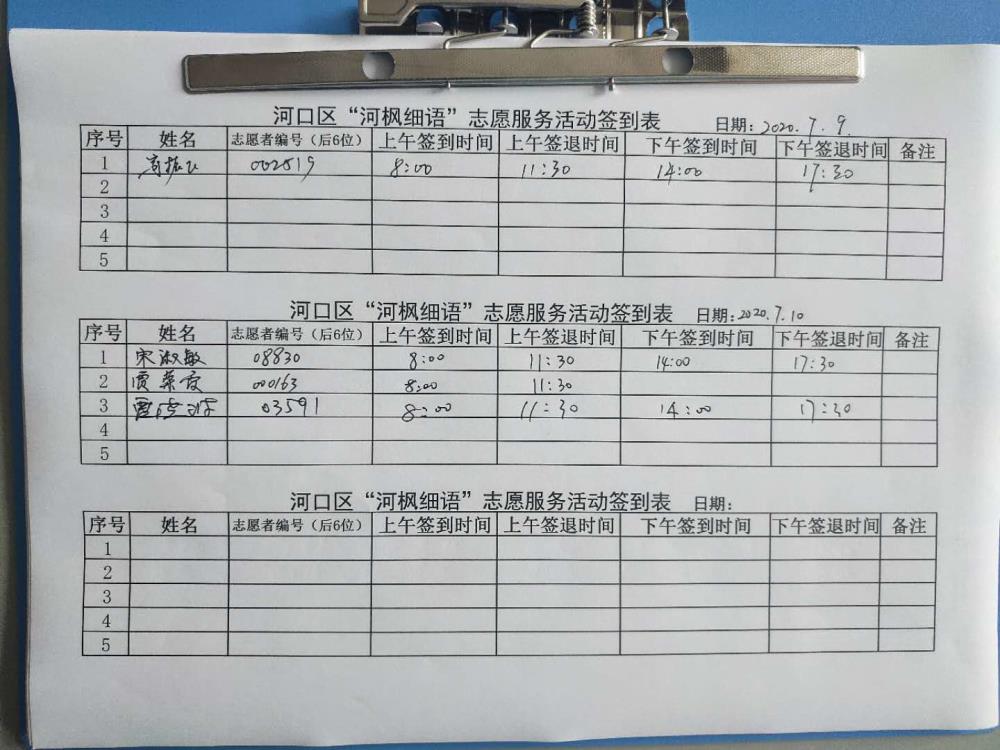 河口区“河枫细语”志愿服务活动签到表 日期:2020.7.9.
序号 姓名 志愿者编号（后6位） 上午签到时间 上午签退时间 下午签到时间 下午签退时间 备注
1 002519 8:00 11:30 14:00 17:30
2
3
4
5
河口区“河枫细语”志愿服务活动签到表 日期:2020.7.10
序号 姓名 志愿者编号（后6位） 上午签到时间 上午签退时间 下午签到时间 下午签退时间 备注
1 宋淑敏 08830 8:00 11:30 14:00 17:30
2 000163 8:00 11:30
3 03591 8:00 11:30 14:00 17:30
4
5
河口区“河枫细语”志愿服务活动签到表 日期:
序号 姓名 志愿者编号（后6位） 上午签到时间 上午签退时间 下午签到时间 下午签退时间 备注
1
2
3
4
5